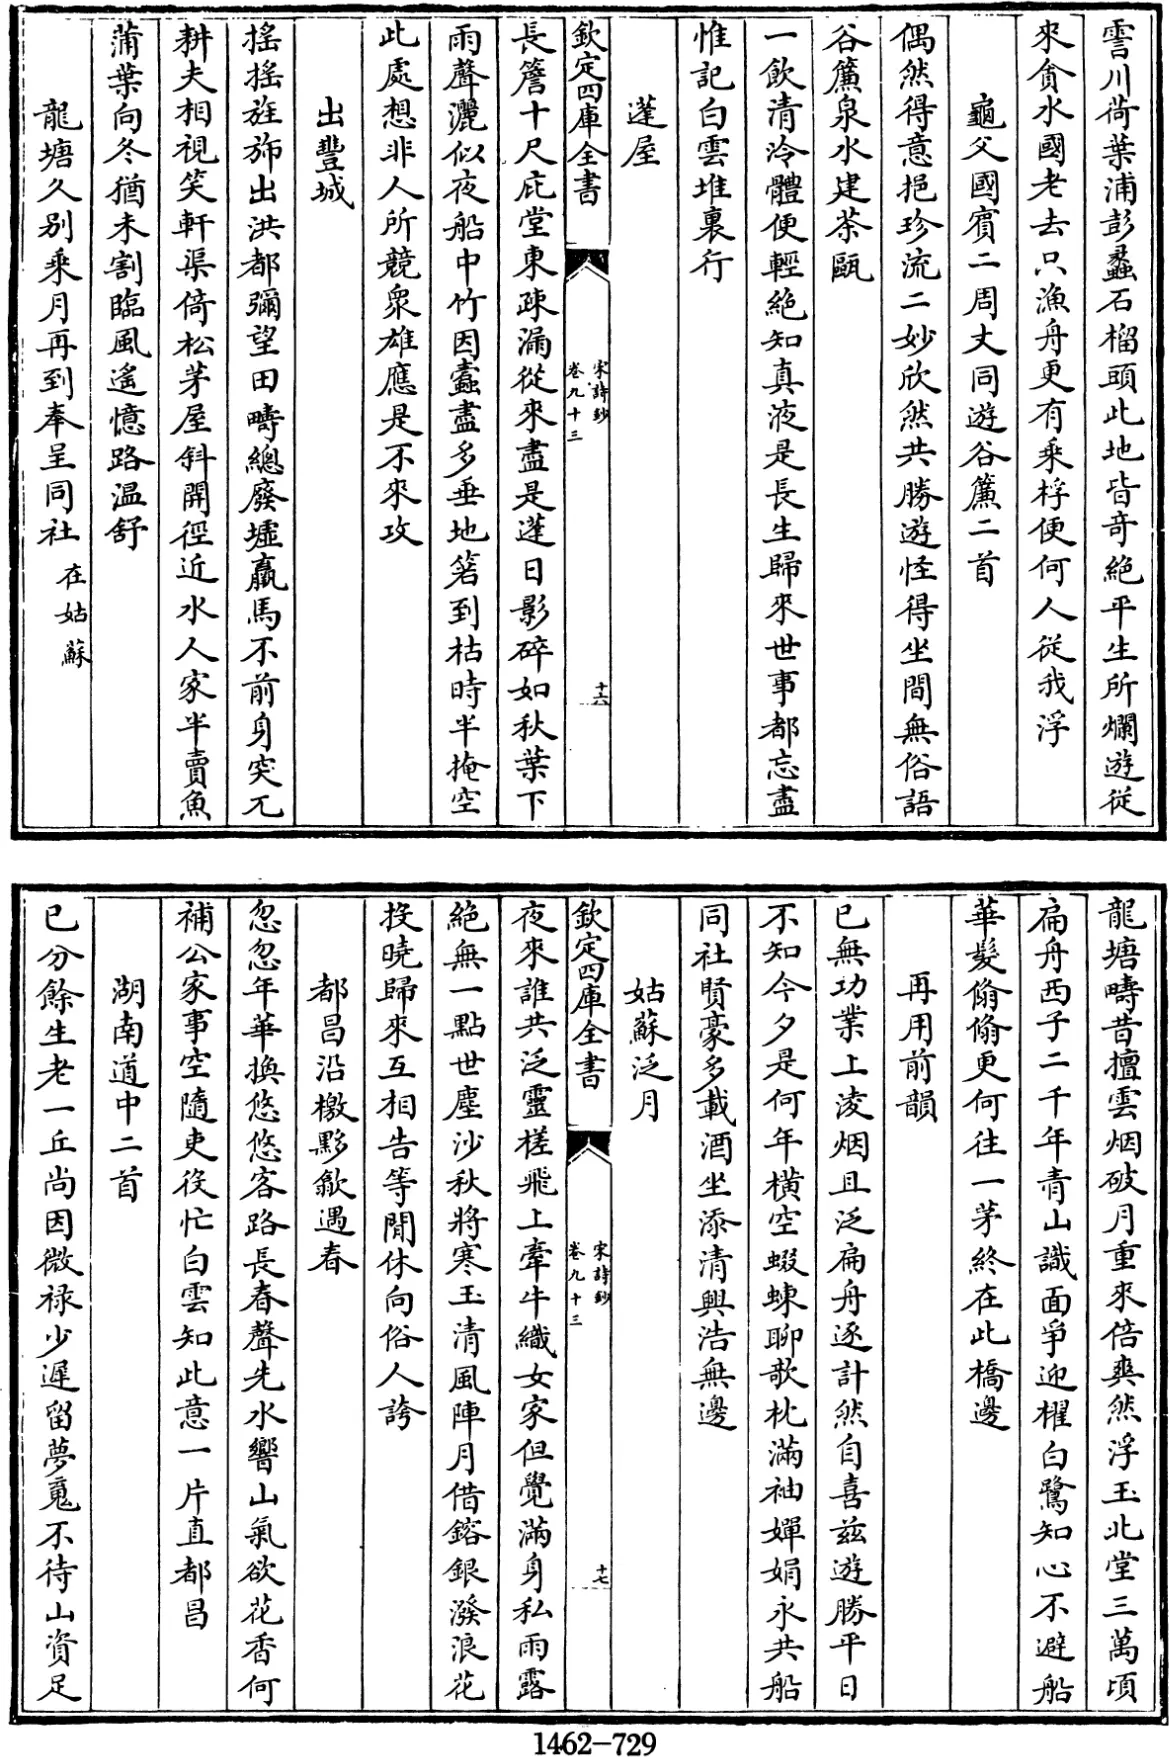 霅川荷葉浦彭蠡石榴頭此地皆奇絶平生所爛遊從
來貪水國老去只漁舟更有乘桴便何人從我浮
龜父國賓二周丈同遊谷簾二首
偶然得意挹珍流二妙欣然共勝遊怪得坐間無俗語
谷簾泉水建茶甌
一飲清泠體便輕絶知真液是長生歸來世事都忘盡
惟記白雲堆裏行
蓬屋
欽定四庫全書
宋詩鈔
卷九十三
十六
長簷十尺庇堂東疎漏從來盡是蓬日影碎如秋葉下
雨聲灑似夜船中竹因蠧盡多垂地箬到枯時半掩空
此處想非人所競衆雄應是不來攻
出豐城
搖搖旌斾出洪都彌望田疇總廢墟羸馬不前身突兀
耕夫相視笑軒渠倚松茅屋斜開徑近水人家半賣魚
蒲葉向冬猶未割臨風遙憶路温舒
龍塘久别乘月再到奉呈同社 在姑蘇
龍塘疇昔擅雲烟破月重來倍爽然浮玉北堂三萬頃
扁舟西子二千年青山識面爭迎櫂白鷺知心不避船
華髮翛翛更何往一茅終在此橋邊
再用前韻
已無功業上凌烟且泛扁舟逐計然自喜兹遊勝平日
不知今夕是何年横空蝃蝀聊歌枕滿袖嬋娟永共船
同社賢豪多載酒坐添清興浩無邊
姑蘇泛月
欽定四庫全書
宋詩鈔
卷九十三
十七
夜來誰共泛靈槎飛上牽牛織女家但覺滿身私雨露
絶無一點世塵沙秋將寒玉清風陣月借鎔銀潑浪花
投曉歸來互相告等閒休向俗人誇
都昌沿檄黟歙遇春
忽忽年華換悠悠客路長春聲先水響山氣欲花香何
補公家事空隨吏役忙白雲知此意一片直都昌
湖南道中二首
已分餘生老一丘尚因微禄少遲留夢魂不待山資足
1462-729